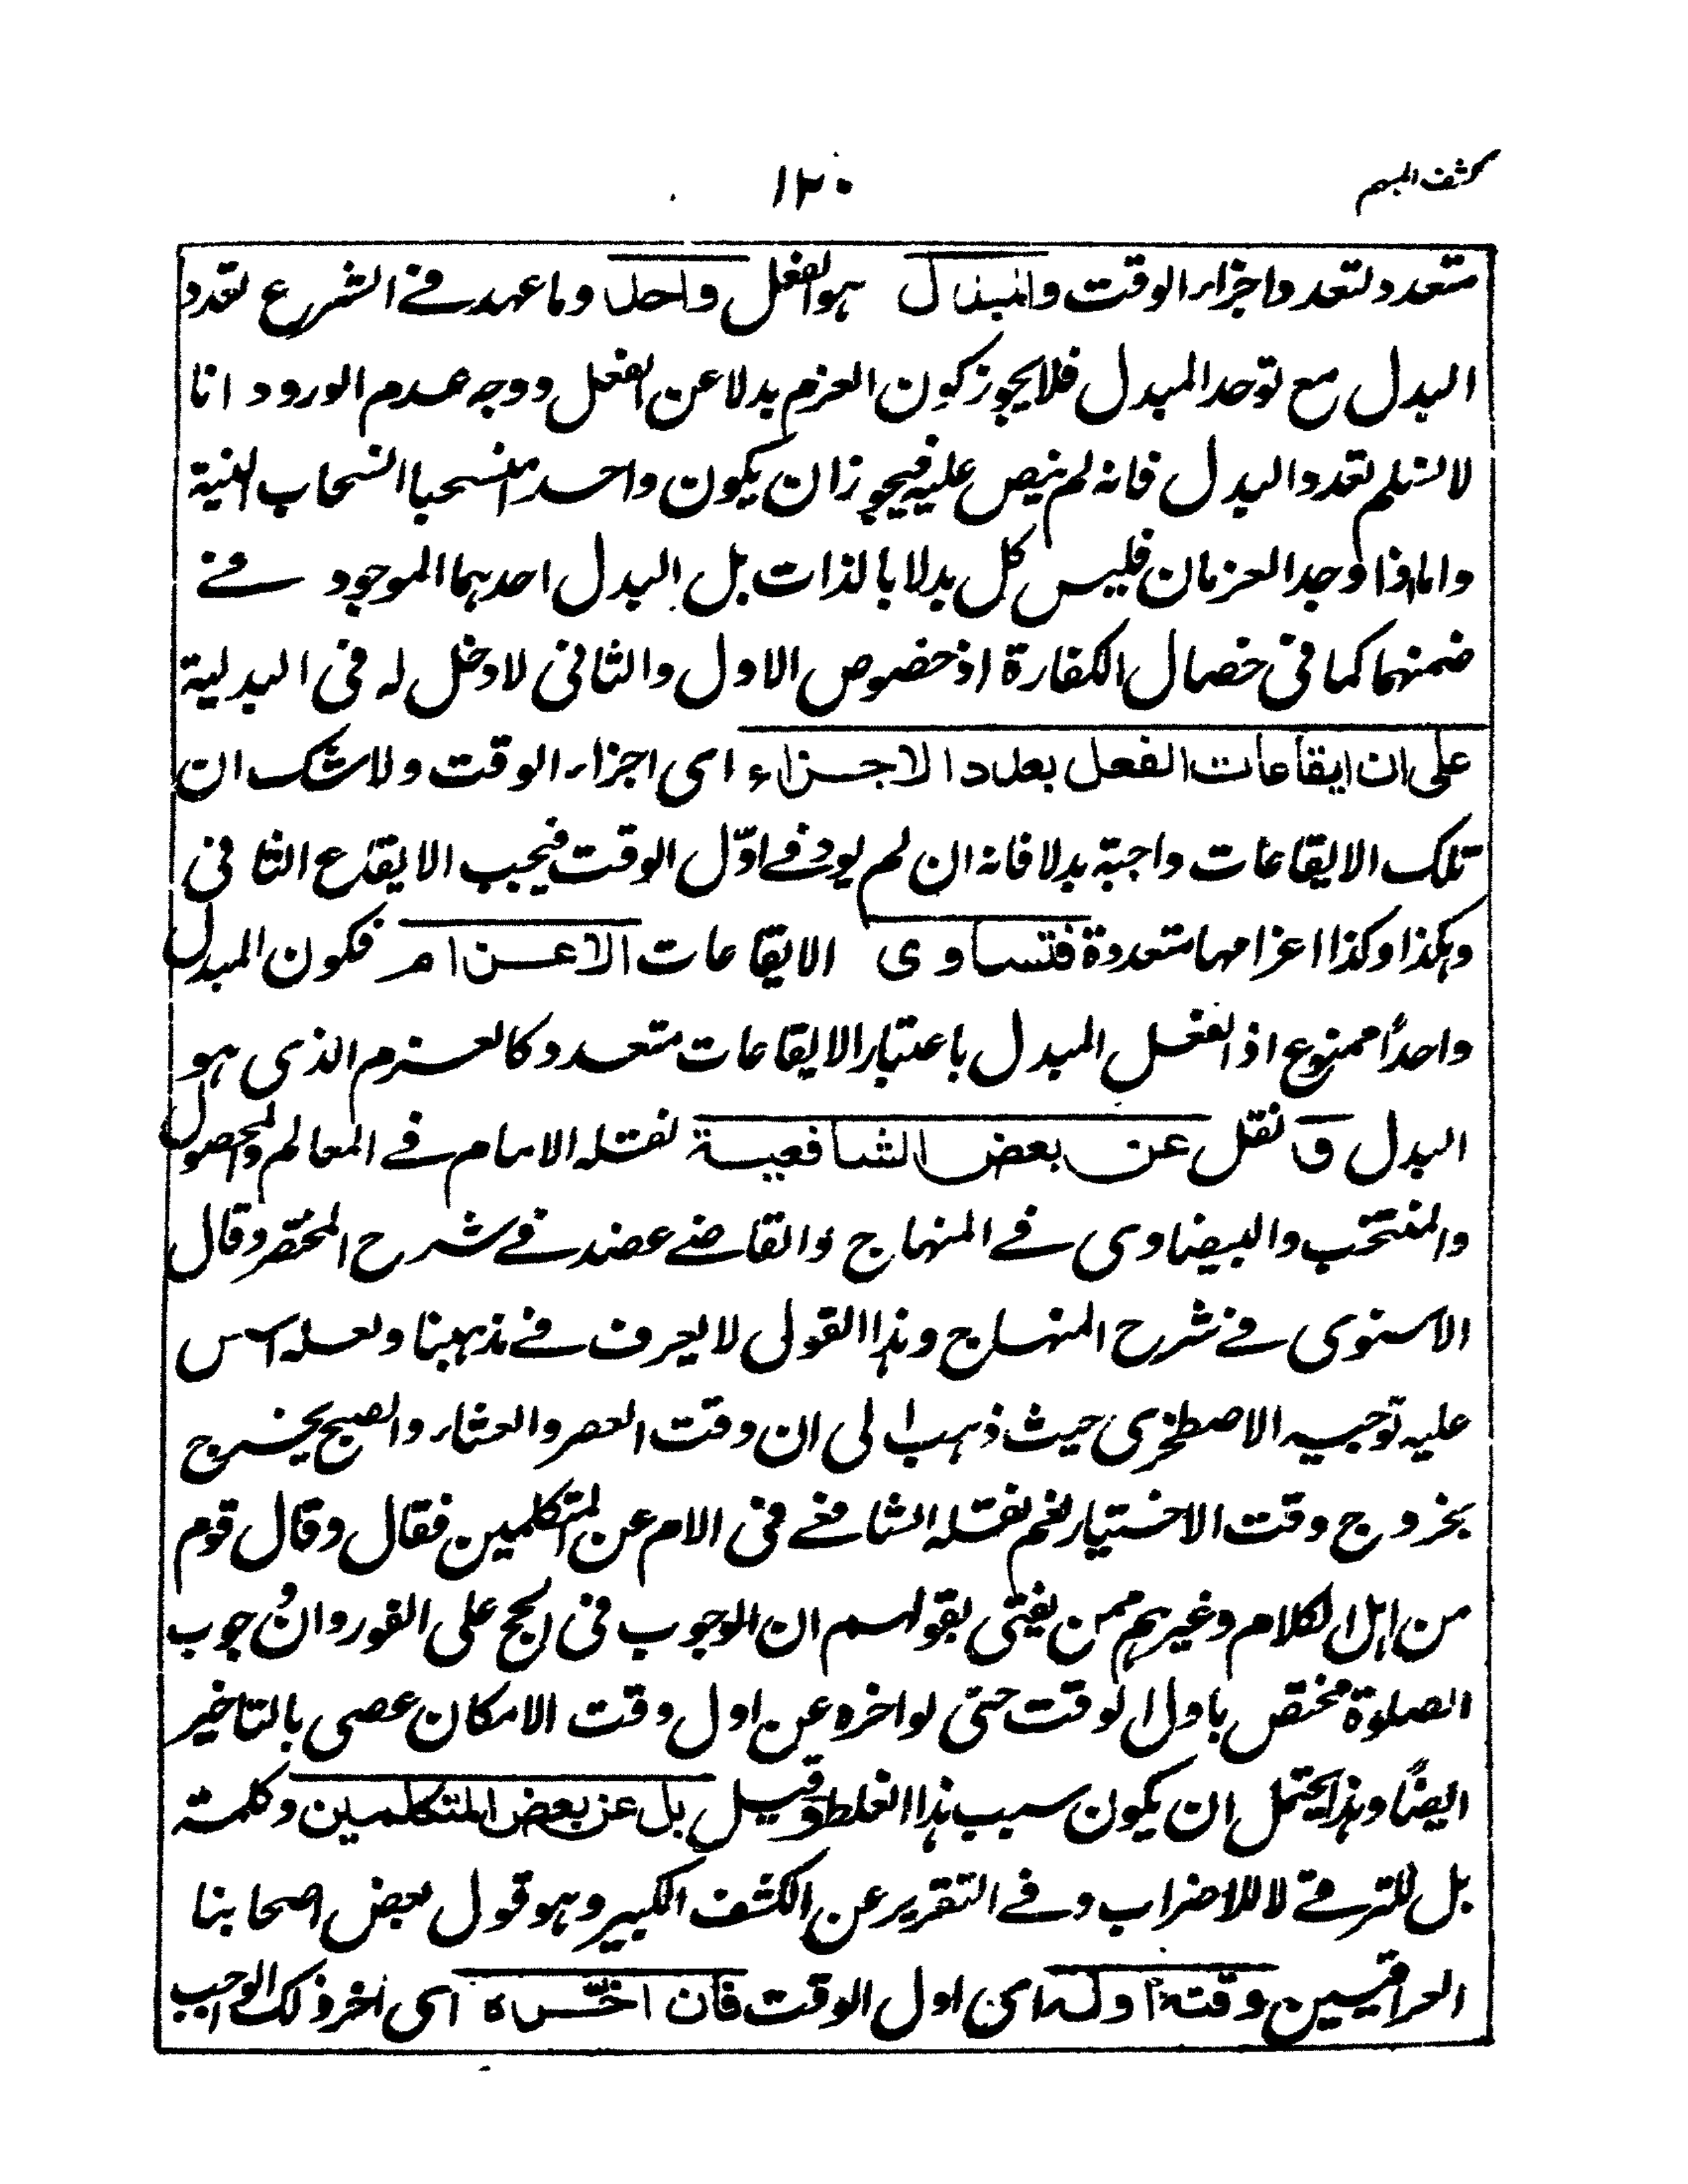 كشف المبهم
١٢٠
متعدد لتعدد اجزاء الوقت والمبدل هو الفعل واحد وما عهد في الشرع تعدد
البدل مع توحد المبدل فلا يجوز كون العزم بدلا عن الفعل ووجه عدم الورود انا
لا نسلم تعدد البدل فانه لم ينص عليه فيجوز ان يكون واحدا منسحبا انسحاب النية
واما اذا وجد العزمان فليس كل بدلا بالذات بل البدل احدهما الموجود في
ضمنهما كما في خصال الكفارة اذ خصوص الاول والثاني لا دخل له في البدلية
على ان ايقاعات الفعل بعدد الاجزاء اى اجزاء الوقت ولا شك ان
تلك الايقاعات واجبة بدلا فانه ان لم يود في اوّل الوقت فيجب الايقاع الثاني
وهكذا وكذا اعزامها متعددة فتساوى الايقاعات الاعزام فكون المبدل
واحداً ممنوع اذ الفعل المبدل باعتبار الايقاعات متعدد كالعزم الذى هو
البدل و نقل عن بعض الشافعية نقله الامام في المعالم والمحصول
والمنتخب والبيضاوى في المنهاج والقاضي عضد في شرح المختصر وقال
الاسنوى في شرح المنهاج وهذا القول لا يعرف في مذهبنا ولعله اسس
عليه توجيه الاصطخرى حيث ذهب الى ان وقت العصر والعشاء والصبح يخرج
بخروج وقت الاختيار نعم نقله الشافعي في الام عن المتكلمين فقال وقال قوم
من اهل الكلام وغيرهم ممن يفتي بقولهم ان الوجوب في الحج على الفور وان وجوب
الصلوة مختص باول الوقت حتى لو اخره عن اول وقت الامكان عصى بالتاخير
ايضًا وهذا يحتمل ان يكون سبب هذا الغلط وقيل بل عن بعض المتكلمين وكلمة
بل للترقي لا للاضراب وفي التقرير عن الكشف الكبير وهو قول بعض اصحابنا
العراقيين وقته اوله اى اول الوقت فان اخّره اى اخر ذلك الواجب